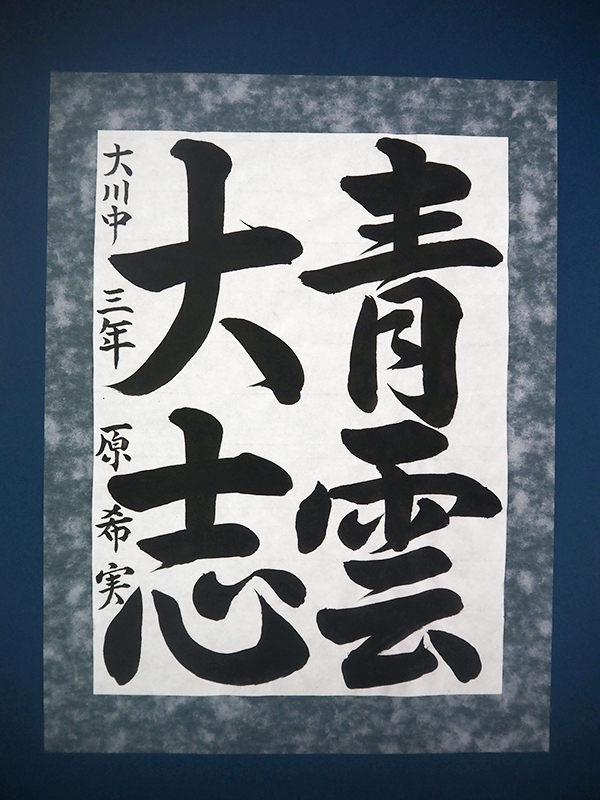 青雲
大志
大川中 三年 原 希実